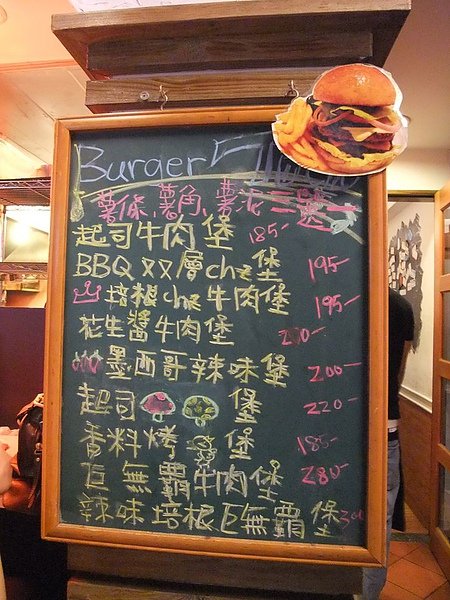 Burger
薯條、薯角、薯泥 三選一
起司牛肉堡 185-
BBQ 双層chz堡 195-
培根chz牛肉堡 195-
花生醬牛肉堡 200-
墨西哥辣味堡 200-
起司 堡 220-
香料烤 堡 185-
巨無霸牛肉堡 280-
辣味培根巨無霸堡